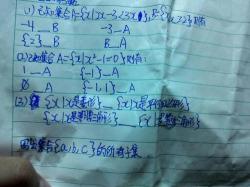 (1)已知集合A={x|x-3<3x},B={x|x≥2}则有
-4__B    -3__A
{2}__B    B__A
(2)已知集合A={x|x²-1=0}则有:
1__A    {-1}__A
∅__A    {-1,1}__A
(3) {x|x是菱形}__{x|x是平行四边形}
{x|x是等腰三角形}__{x|x是等边三角形}
写出集合{a,b,c}的所有子集